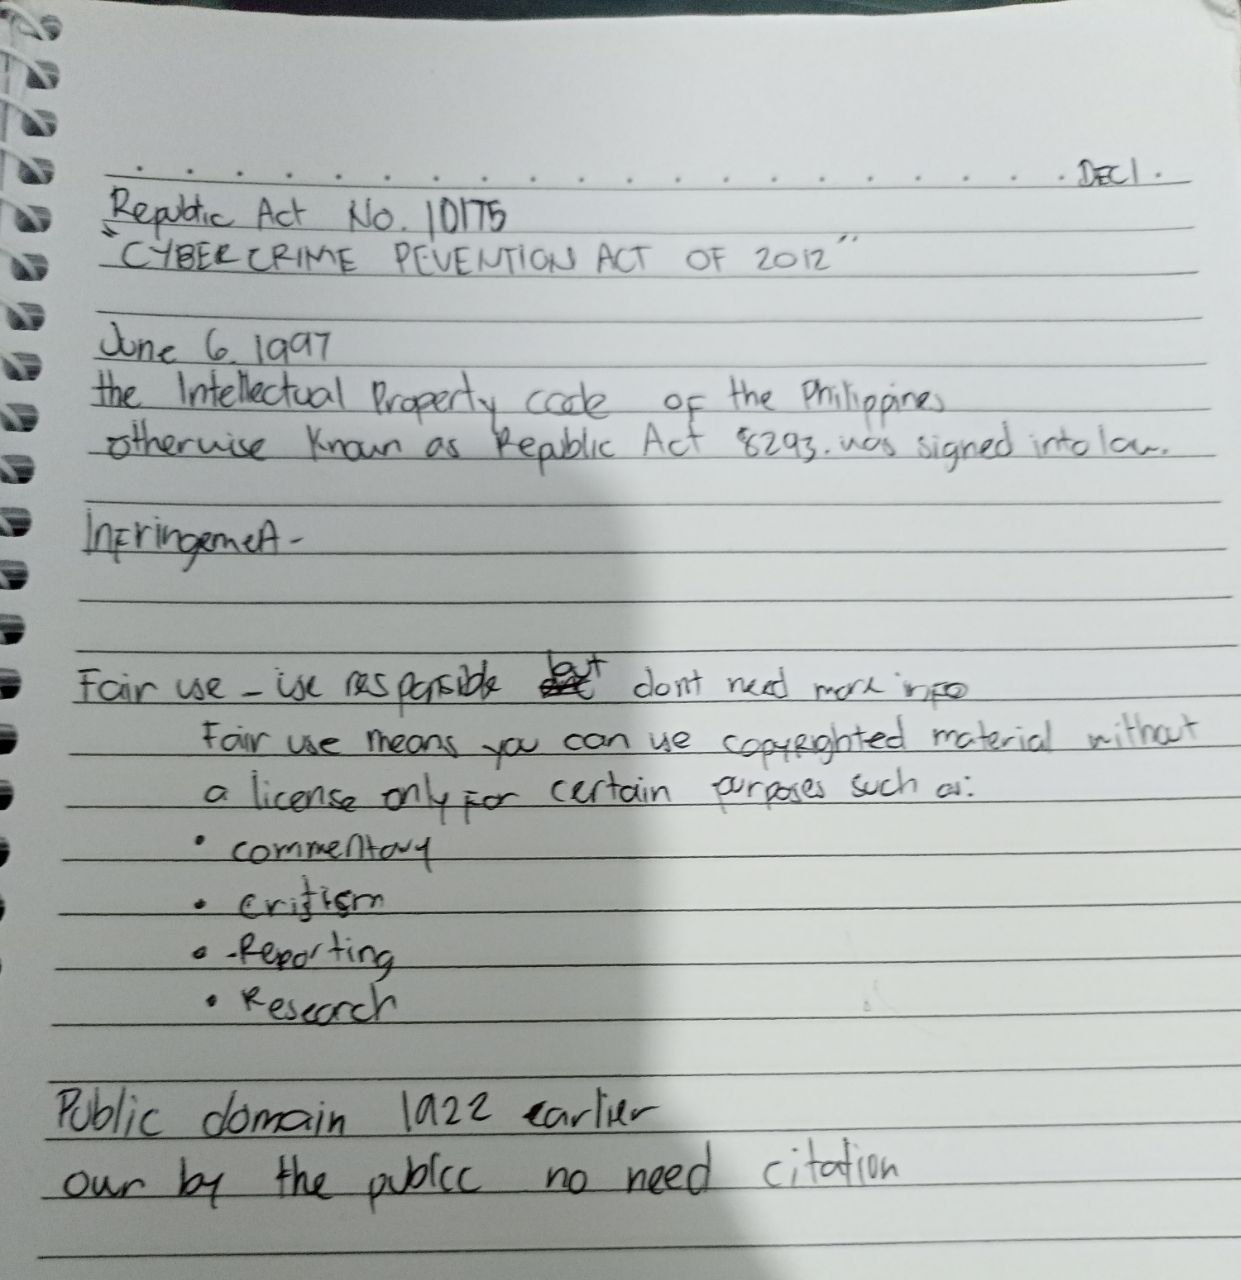 DEC 1.
Republic Act No. 10175
"CYBERCRIME PEVENTION ACT OF 2012"
June 6. 1997
the Intellectual Property code of the Philippines
otherwise Known as Republic Act 8293. was signed into law.
Infringement -
Fair use - use responsible but dont need more info
Fair use means you can use copyrighted material without
a license only for certain purposes such as:
• commentary
• critism
• Reporting
• Research
Public domain 1922 earlier
own by the public no need citation